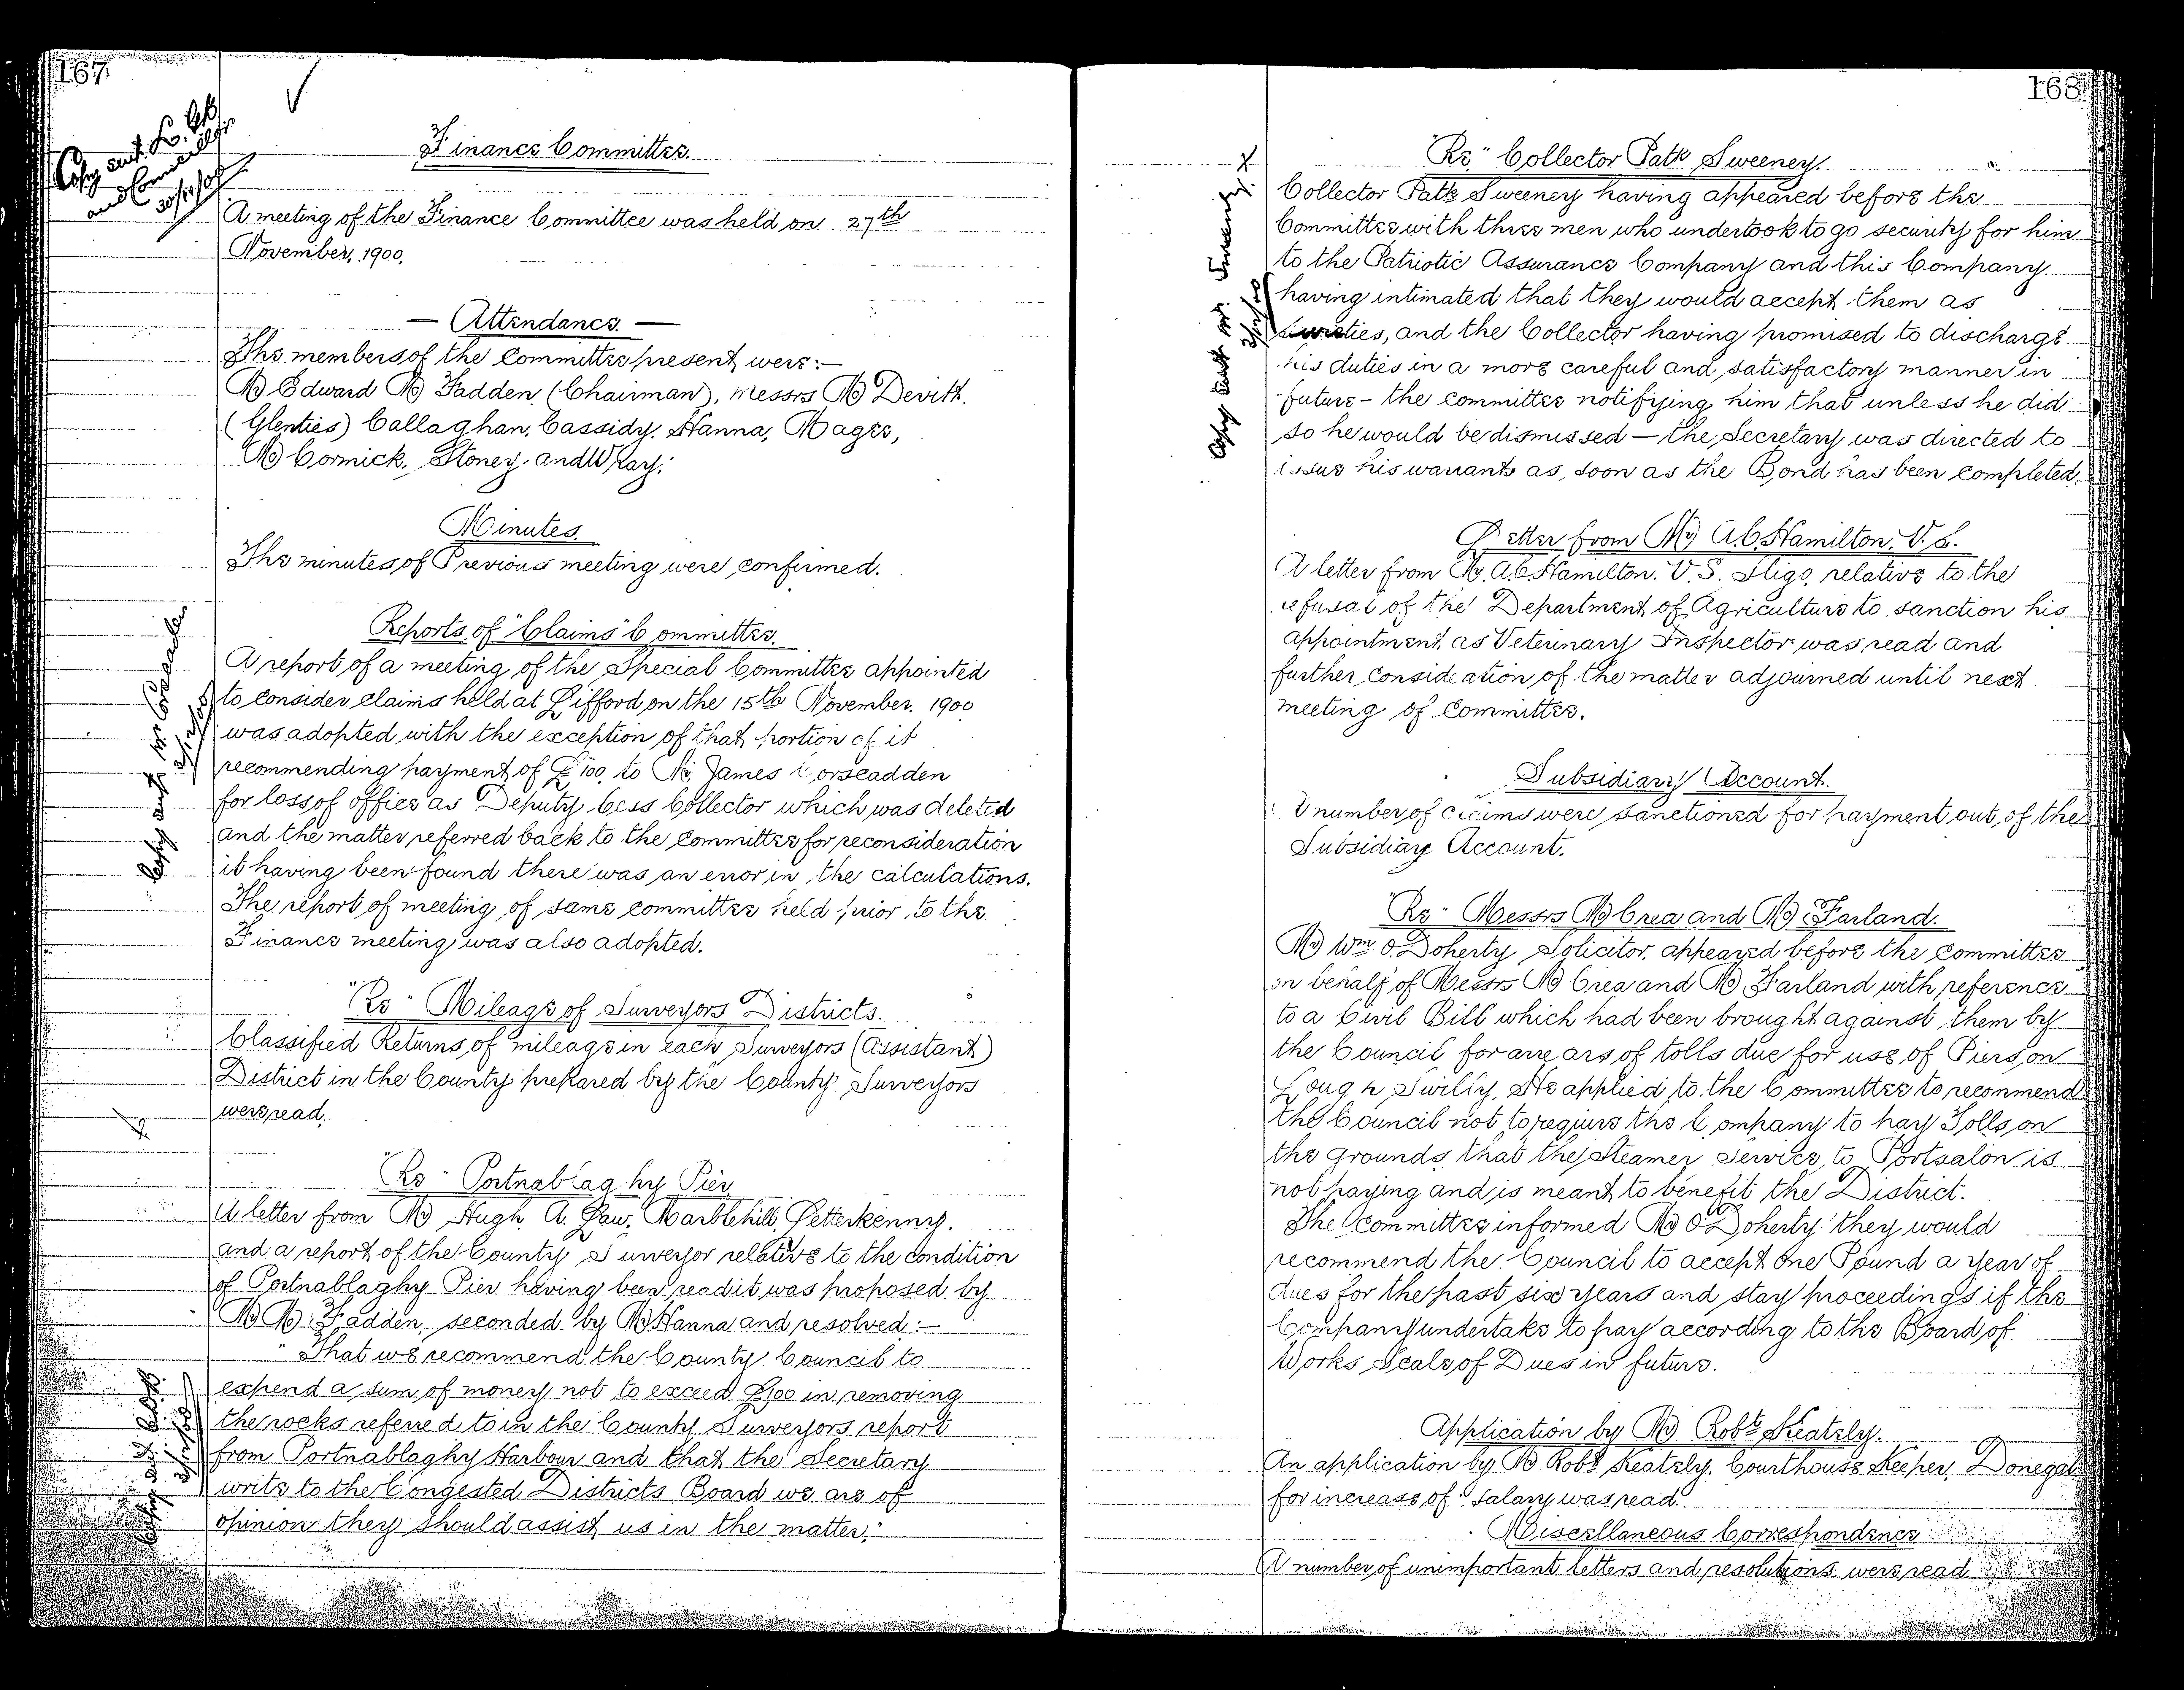 167
Copy sent Lo. Gk
and Councillr
30/11/00
Finance Committee.
A meeting of the Finance Committee was held on 27th
November, 1900.
— Attendance. —
The members of the Committee present were:—
Mr Edward McFadden (Chairman), Messrs McDevitt.
(Glenties) Callaghan, Cassidy, Hanna, Magee,
McCormick, Stoney and Wray.
Minutes.
The minutes of Previous meeting were confirmed.
Reports of "Claims" Committee.
A report of a meeting of the Special Committee appointed
to consider claims held at Lifford on the 15th November, 1900
was adopted with the exception of that portion of it
recommending payment of £100 to Mr James Corscadden
for loss of office as Deputy Cess Collector which was deleted
and the matter referred back to the Committee for reconsideration
it having been found there was an error in the calculations.
The report of meeting of same committee held prior to the
Finance meeting was also adopted.
Copy sent Mr Corscadden
"Re" Mileage of Surveyors Districts.
Classified Returns of mileage in each Surveyors (Assistant)
District in the County prepared by the County Surveyors
were read.
"Re" Portnablaghy Pier
A letter from Mr Hugh A. Law, Marblehill, Letterkenny.
and a report of the County Surveyor relative to the condition
of Portnablaghy Pier having been read it was proposed by
Mr McFadden, seconded by Mr Hanna and resolved:—
"That we recommend the County Council to
expend a sum of money not to exceed £100 in removing
the rocks referred to in the County Surveyors report
from Portnablaghy Harbour and that the Secretary
write to the Congested Districts Board we are of
opinion they should assist us in the matter."
168
"Re" Collector Patk Sweeney.
Collector Patk Sweeney having appeared before the
Committee with three men who undertook to go security for him
to the Patriotic Assurance Company and this Company
having intimated that they would accept them as
Sureties, and the Collector having promised to discharge
his duties in a more careful and satisfactory manner in
future – the committee notifying him that unless he did
so he would be dismissed — the Secretary was directed to
issue his warrants as soon as the Bond has been completed.
Copy sent Mr. Sweeney
Letter from Mr A.C. Hamilton. V.S.
A letter from Mr. A.C. Hamilton. V.S. Sligo, relative to the
refusal of the Department of Agriculture to sanction his
appointment as Veterinary Inspector was read and
further consideration of the matter adjourned until next
meeting of Committee.
Subsidiary Account.
A number of claims were sanctioned for payment out of the
Subsidiary Account.
"Re" Messrs McCrea and McFarland.
Mr Wm O'Doherty Solicitor, appeared before the Committee
on behalf of Messrs McCrea and McFarland with reference
to a Civil Bill which had been brought against them by
the Council for arrears of tolls due for use of Piers on
Lough Swilly, He applied to the Committee to recommend
the Council not to require the Company to pay Tolls on
the grounds that the Steamer Service to Portsalon is
not paying and is meant to benefit the District.
The Committee informed Mr O'Doherty they would
recommend the Council to accept One Pound a year of
dues for the past six years and stay proceedings if the
Company undertake to pay according to the Board of
Works Scale of Dues in future.
Application by Mr Robt Keately.
An application by Mr Robt Keately, Courthouse Keeper, Donegal
for increase of salary was read.
Miscellaneous Correspondence
A number of unimportant letters and resolutions were read